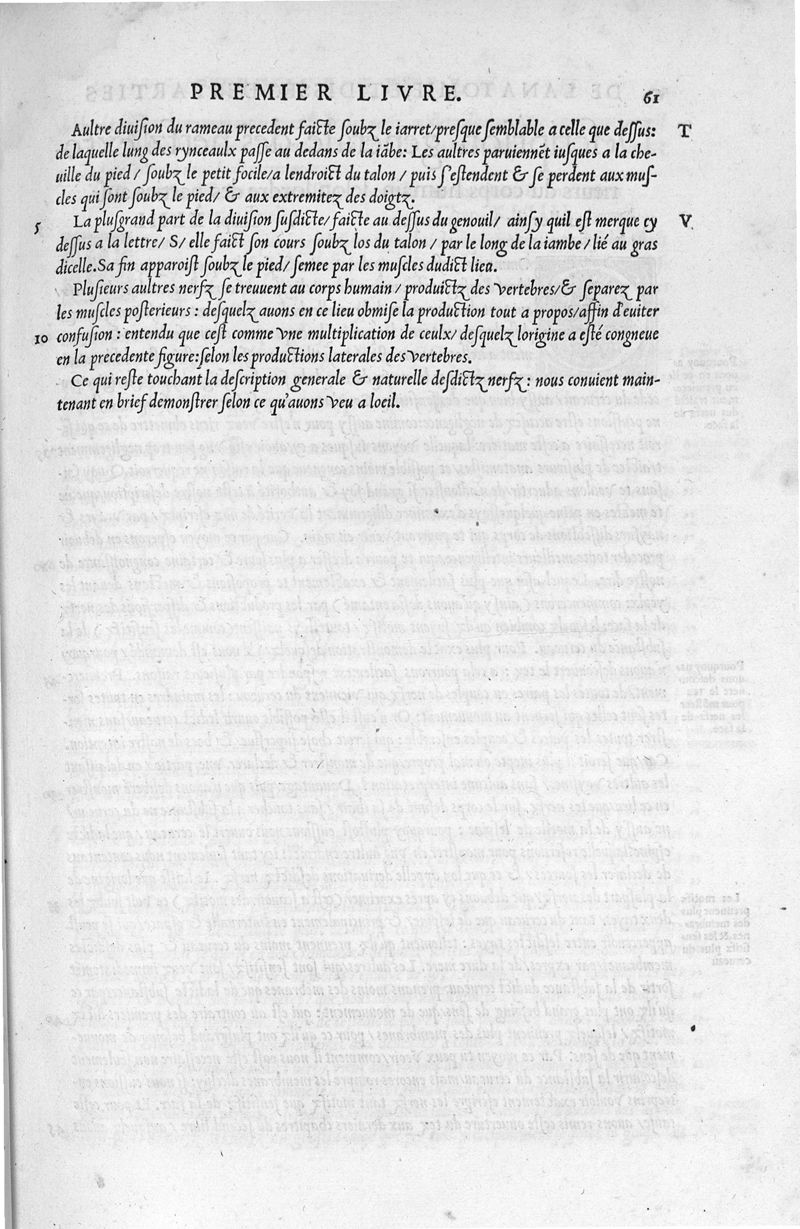 PREMIER LIVRE. 61
Aultre diuiſion du rameau precedent faicte ſoubz le iarret/preſque ſemblable a celle que deſſus: T
de laquelle lung des rynceaulx paſſe au dedans de la iãbe: Les aultres paruiennẽt iuſques a la che-
uille du pied / ſoubz le petit focile/a lendroict du talon / puis s'eſtendent & ſe perdent aux muſ-
cles qui ſont ſoubz le pied/ & aux extremitez des doigtz.
5 La pluſgrand part de la diuiſion ſuſdicte/ faicte au deſſus du genouil/ ainſy quil eſt merque cy V
deſſus a la lettre/ S/ elle faict ſon cours ſoubz los du talon / par le long de la iambe/ lié au gras
dicelle.Sa fin apparoiſt ſoubz le pied/ ſemee par les muſcles dudict lieu.
Pluſieurs aultres nerfz ſe treuuent au corps humain/ produictz des vertebres/& ſeparez par
les muſcles poſterieurs : deſquelz auons en ce lieu obmiſe la production tout a propos/affin d'euiter
10 confuſion : entendu que ceſt comme vne multiplication de ceulx/ deſquelz lorigine a eſté congneue
en la precedente figure:ſelon les productions laterales des vertebres.
Ce qui reſte touchant la deſcription generale & naturelle deſdictz nerfz : nous conuient main-
tenant en brief demonſtrer ſelon ce qu'auons veu a loeil.